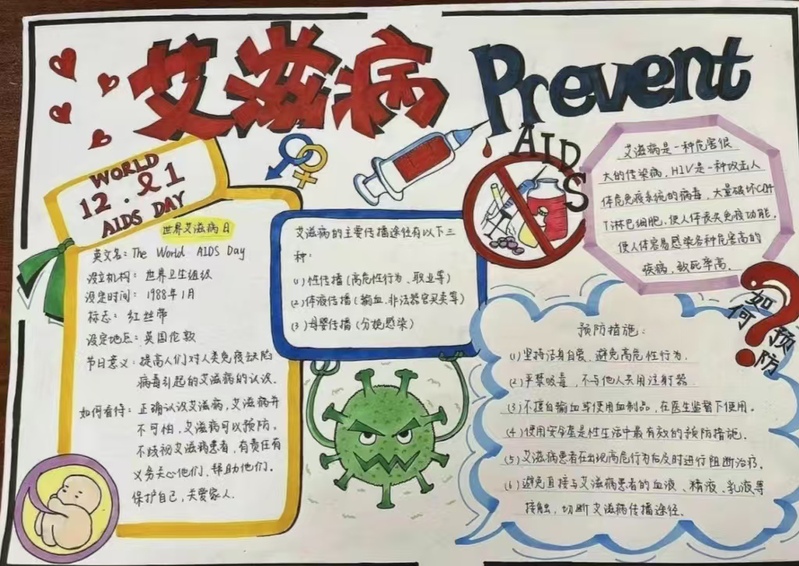 艾滋病 Prevent
AIDS
WORLD
12.1
AIDS DAY
世界艾滋病日
英文名: The World AIDS Day
设立机构: 世界卫生组织
设定时间: 1988年1月
标志: 红丝带
设定地点: 英国伦敦
节日意义: 提高人们对人类免疫缺陷
病毒引起的艾滋病的认识.
如何看待: 正确认识艾滋病, 艾滋病并
不可怕, 艾滋病可以预防.
不歧视艾滋病患者, 有责任有
义务关心他们, 帮助他们.
保护自己, 关爱家人.
艾滋病的主要传播途径有以下三
种:
(1) 性传播 (高危性行为、职业等)
(2) 体液传播 (输血、非法器官买卖等)
(3) 母婴传播 (分娩感染)
艾滋病是一种危害很
大的传染病, HIV是一种攻击人
体免疫系统的病毒, 大量破坏CD4
T淋巴细胞, 使人体丧失免疫功能,
使人体容易感染各种危害高的
疾病, 致死率高.
如何预防?
预防措施:
(1) 坚持洁身自爱, 避免高危性行为.
(2) 严禁吸毒, 不与他人共用注射器
(3) 不擅自输血和使用血制品, 在医生监督下使用.
(4) 使用安全套是性生活中最有效的预防措施.
(5) 艾滋病患者在出现高危行为应及时进行阻断治疗.
(6) 避免直接与艾滋病患者的血液、精液、乳液等
接触, 切断艾滋病传播途径.